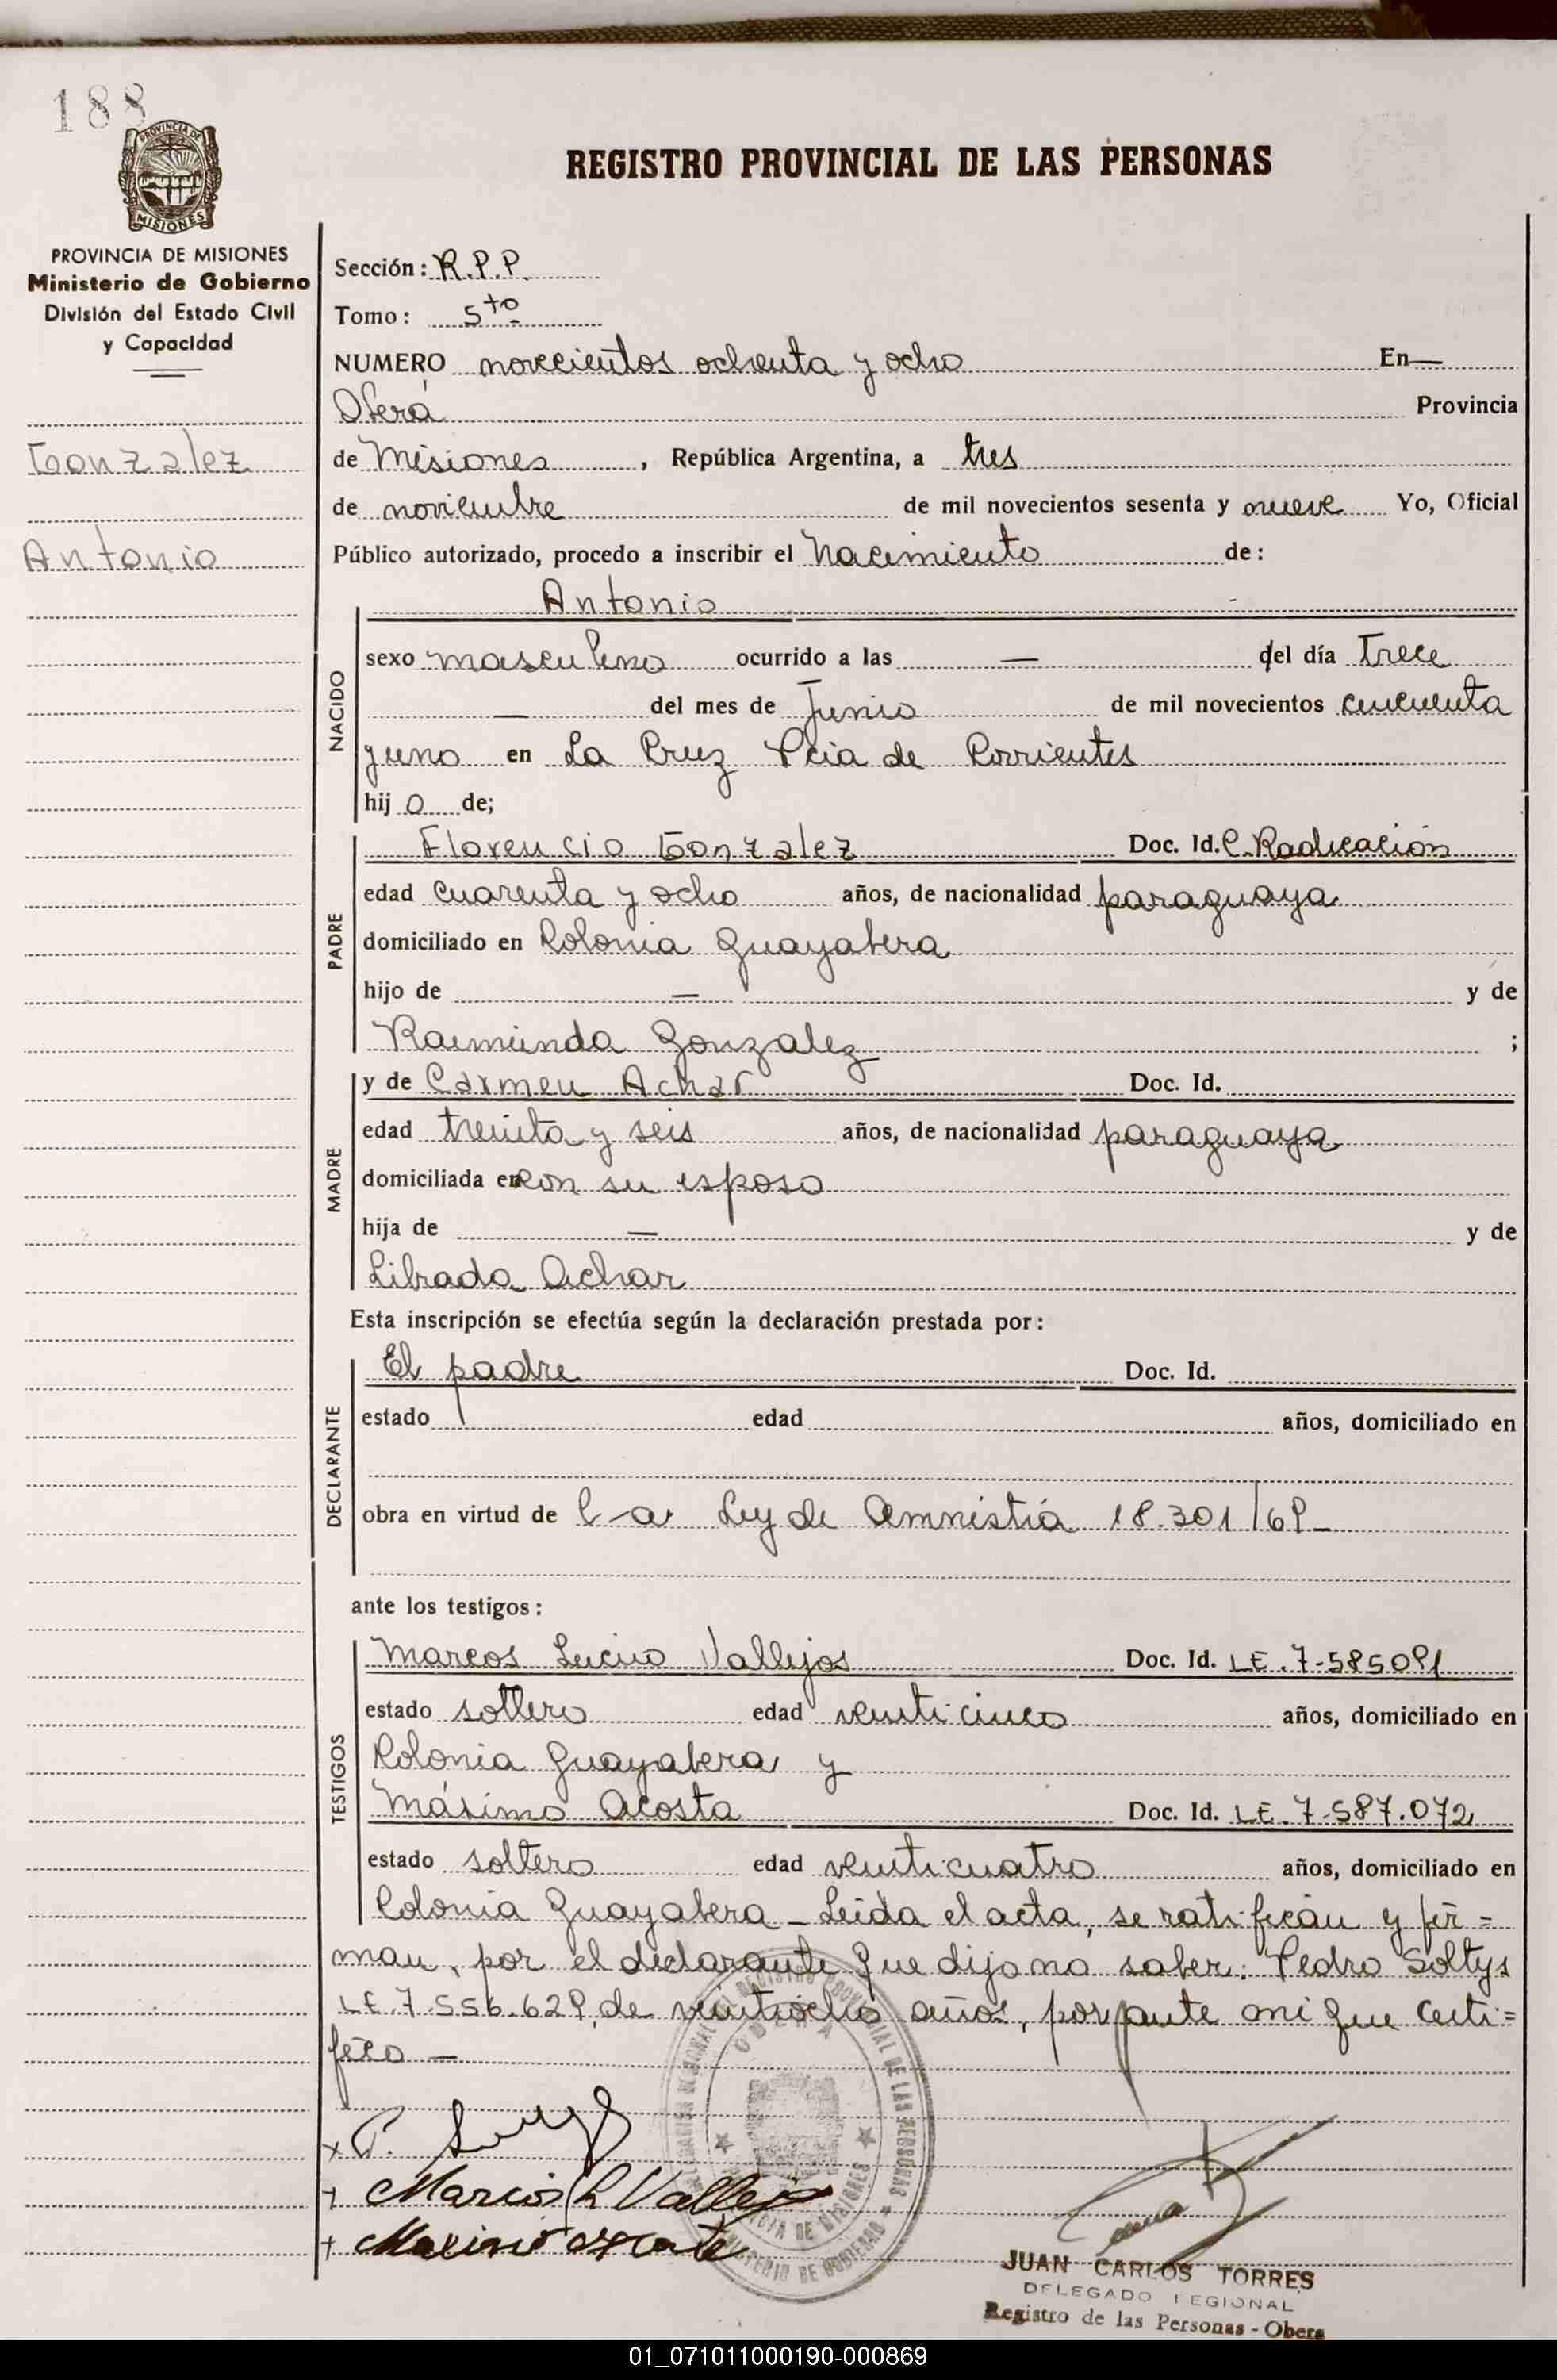 188
PROVINCIA DE
MISIONES
REGISTRO PROVINCIAL DE LAS PERSONAS
PROVINCIA DE MISIONES
Ministerio de Gobierno
División del Estado Civil
y Capacidad
Gonzalez
Antonio
Sección: R.P.P.
Tomo: 5to
NUMERO novecientos ochenta y ocho En—
Oberá Provincia
de Misiones, República Argentina, a tres
de noviembre de mil novecientos sesenta y nueve Yo, Oficial
Público autorizado, procedo a inscribir el Nacimiento de:
Antonio
NACIDO
sexo masculino ocurrido a las — del día Trece
— del mes de Junio de mil novecientos cincuenta
y uno en La Cruz Pcia de Corrientes
hij o de;
PADRE
Florencio Gonzalez Doc. Id. C. Radicación
edad cuarenta y ocho años, de nacionalidad paraguaya
domiciliado en Colonia Guayabera
hijo de — y de
Raimunda Gonzalez ;
MADRE
y de Carmen Achar Doc. Id.
edad treinta y seis años, de nacionalidad paraguaya
domiciliada en con su esposo
hija de — y de
Librada Achar
Esta inscripción se efectúa según la declaración prestada por:
DECLARANTE
El padre Doc. Id.
estado edad años, domiciliado en
obra en virtud de La Ley de Amnistía 18.301/69_
ante los testigos:
TESTIGOS
Marcos Lucio Vallejos Doc. Id. LE. 7-585091
estado soltero edad veinticinco años, domiciliado en
Colonia Guayabera y
Máximo Acosta Doc. Id. LE. 7-587.072
estado soltero edad veinticuatro años, domiciliado en
Colonia Guayabera _ Leida el acta, se ratifican y fir=
man, por el declarante que dijo no saber: Pedro Soltys
LE 7.556.629, de veintiocho años, por ante mi que certi=
fico —
REGISTRO PROVINCIAL DE LAS PERSONAS
OBERA
MINISTERIO DE GOBIERNO
Marcos L Vallejo
JUAN CARLOS TORRES
DELEGADO REGIONAL
Registro de las Personas - Obera
01_071011000190-000869